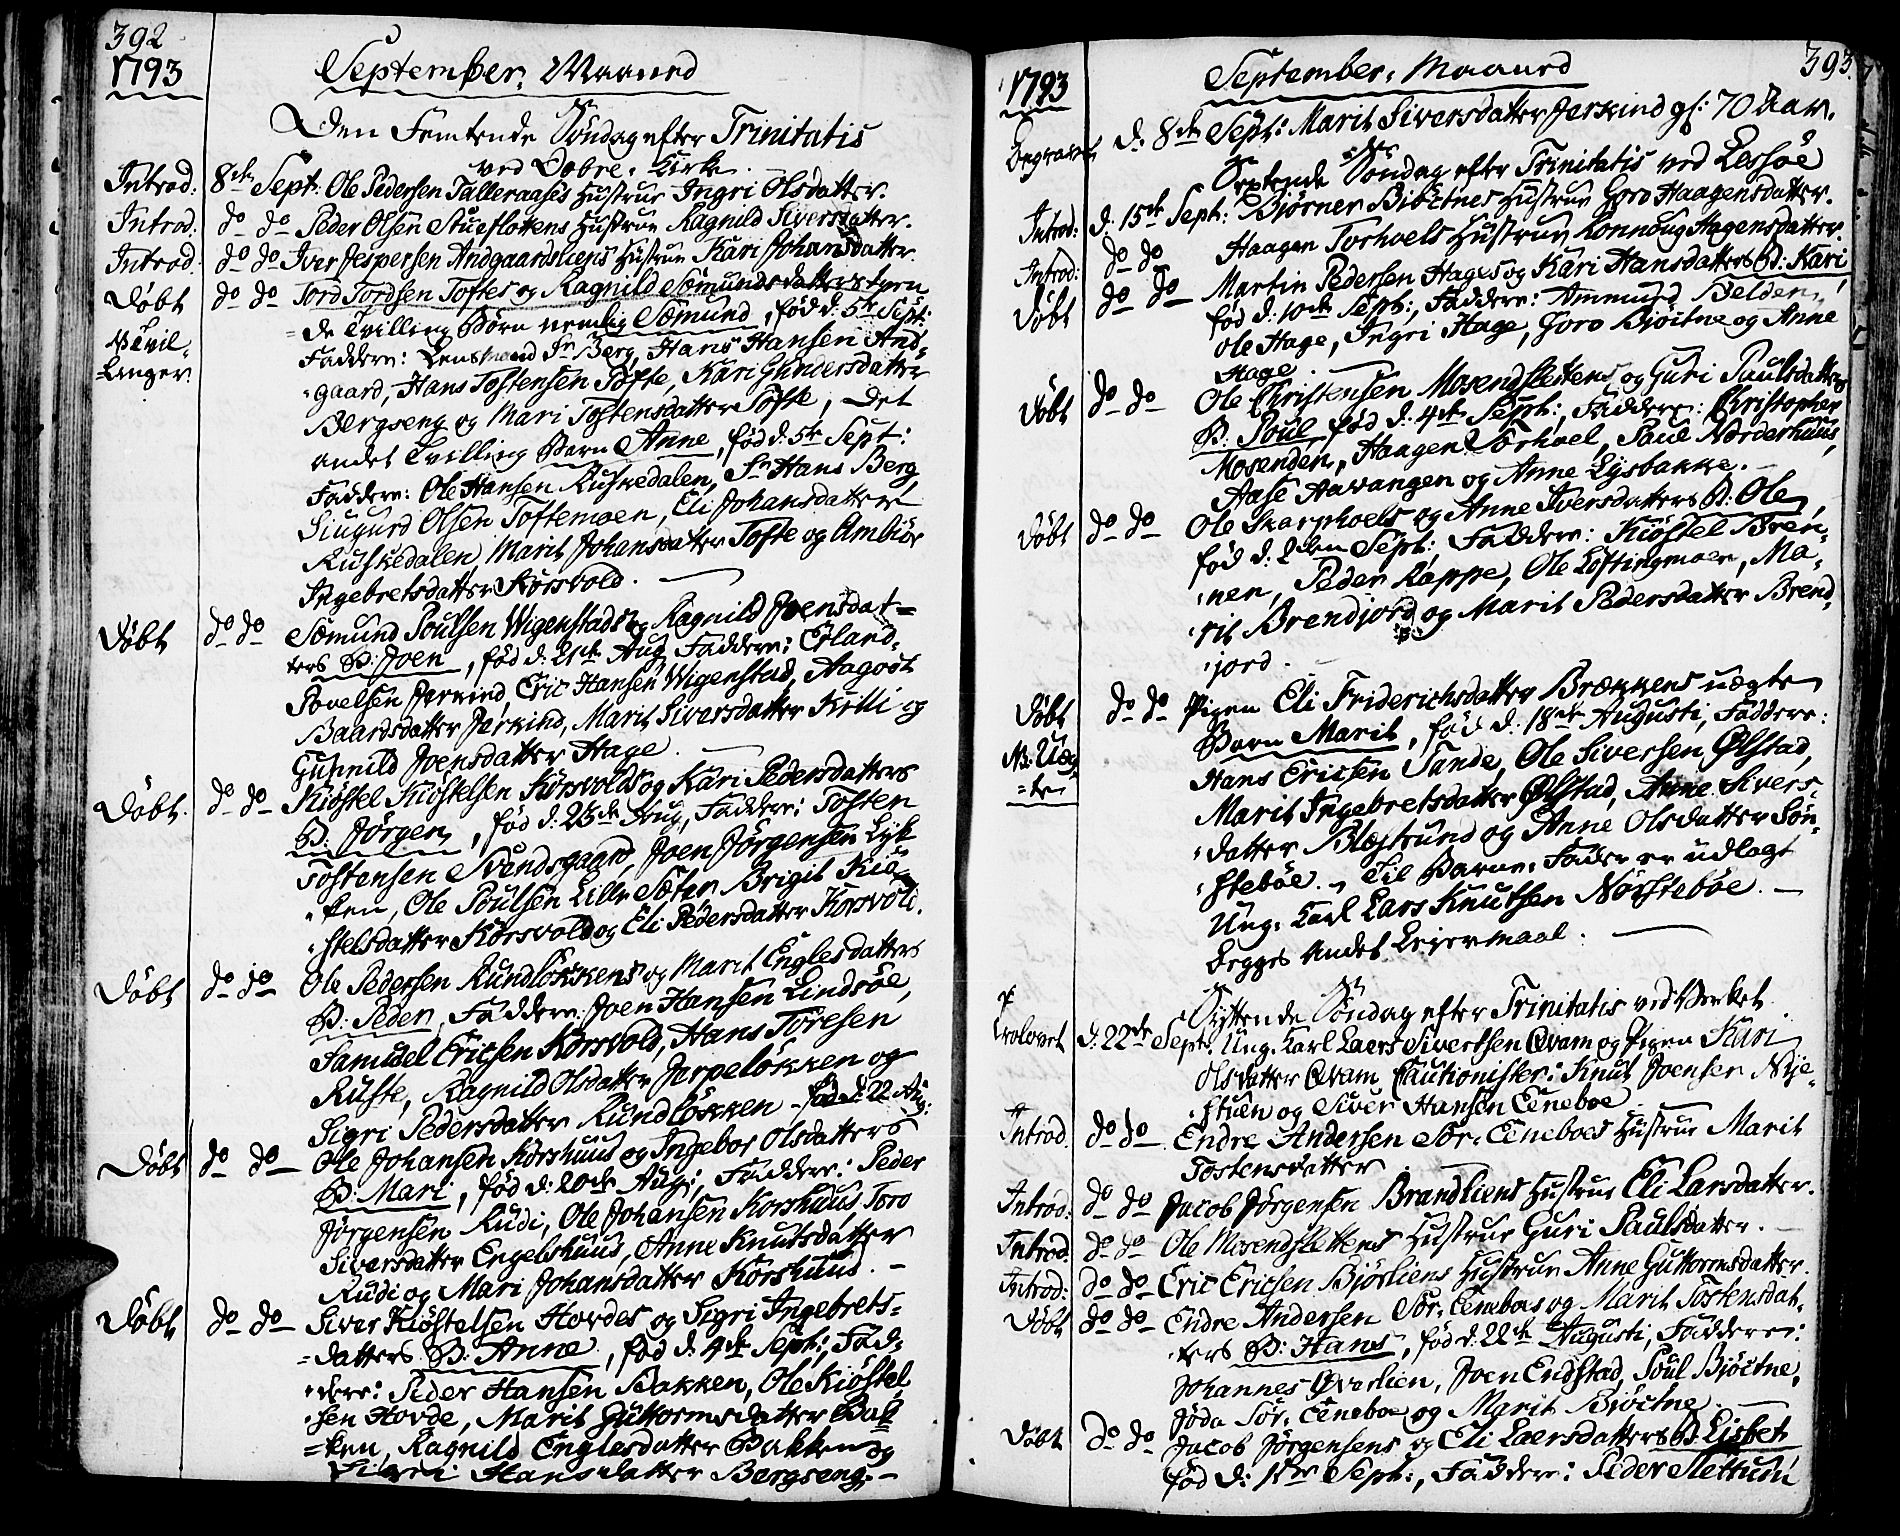 392
1793
September, Maaned
Den Femtende Søndag efter Trinitatis
ved Dovre, Kirke
Introd: 8de Sept: Ole Pedersen Talleraases Hustrue Ingri Olsdatter.
Introd: do do Peder Olsen Stueflottens Hustrue Ragnild Siversdatter.
Introd: do do Iver Jespersen Andgaardsliens Hustrue Kari Johansdatter
Døbt do do Tord Tordsen Toftes og Ragnild Sæmundsdatters tven
NB: Tvil-
=de Tvilling Børn nemlig Sæmund, fød d: 5te Sept:
Faddere: Lensmand Sr Berg, Hans Hansen And-
=Linger.
gaard, Hans Tostensen Tofte, Kari Gundersdatter
Bergseng og Mari Tostensdatter Tofte, Det
andet Tvilling Barn Anne, fød d: 5te Sept:
Faddere: Ole Hansen Ruskedalen, Sr Hans Berg,
Siugurd Olsen Toftemoen, Eli Johansdatter
Ruskedalen, Marit Johansdatter Tofte og Ambiør
Ingebretsdatter Korsvold.
Døbt do do Sæmund Poulsen Wigenstads og Ragnild Joensdat=
ters B: Joen, fød d: 21de Aug, Faddere: Erland
Povelsen Jerkind, Eric Hansen Wigenstad, Aagodt
Baardsdatter Jerkind, Marit Siversdatter Killi og
Gunnild Joensdatter Hage.
Døbt. do do Kiøstel Kiøstelsen Korsvolds og Kari Pedersdatters
B: Jørgen, fød d: 23de Aug, Faddere: Tosten
Tostensen Svendsgaard, Joen Jørgensen Løk-
ken, Ole Poulsen Lille Sæter, Brigit Kiø-
stelsdatter Korsvold og Eli Pedersdatter Korsvold.
Døbt do do Ole Pedersen Rundløkkens og Marit Englesdatters
B: Peder, Faddere: Joen Hansen Lindsøe,
Samuel Ericsen Korsvold, Hans Toresen
Ruste, Ragnild Olsdatter Jerpeløkken og
Sigri Pedersdatter Rundløkken fød d: 22 Aug:
Døbt do do Ole Johansen Korshuus og Ingebor Olsdatters
B: Mari, fød d: 20de Aug:, Faddere: Peder
Jørgensen Rudi, Ole Johansen Korshuus, Toro
Siversdatter Engelshuus, Anne Knutsdatter
Rudi og Mari Johansdatter Korshuus.
Døbt do do Siver Kiøstelsen Hovdes og Sigri Ingebrets-
=datters B: Anne, fød d: 4de Sept:, Fad-
dere: Peder Hansen Bakken, Ole Kiøstel-
sen Hovde, Marit Guttormsdatter Bak-
=ken, Ragnild Englesdatter Bakken og
Sigri Hansdatter Bergseng.
393
1793
September, Maaned
Begraven d: 8de Sept: Marit Siversdatter Jerkind gl: 70 Aar.
Sextende Søndag efter Trinitatis ved Lessøe
Introd: d: 15de Sept: Biørner Biøctnes Hustrue Goro Haagensdatter.
Introd: do do Haagen Torhoels Hustrue Ronnoug Hagensdatter.
Døbt do do Martin Pedersen Hages og Kari Hansdatters B: Kari
fød d: 10de Sept:, Faddere: Ammund Belden,
Ole Hage, Ingri Hage, Goro Bjøctne og Anne
Hage.
Døbt do do Ole Christensen Mosendslettens og Guri Paulsdatters
B: Poul fød d: 4de Sept:, Faddere: Christopher
Mosenden, Haagen Torhoel, Paul Nørderhuus,
Aase Aavangen og Anne Lysbakke.
Døbt do do Ole Skarphoels og Anne Iversdatters B: Ole,
fød d: 2den Sept:, Faddere: Kiøstel Bren-
nen, Peder Rappe, Ole Løftingmoen, Ma-
rit Brendjord og Marit Pedersdatter Brend-
jord.
Døbt do do Pigen Eli Friderichsdatter Brækkens uægte
Barn Marit, fød d: 18de Augusti, Faddere:
NB: Uæg-
=te
Hans Ericsen Tande, Ole Siversen Ølstad,
Marit Ingebretsdatter Ølstad, Anne Sivers-
datter Blæstrund og Anne Olsdatter Søn-
stebøe. Til Barne, Fader er udlagt
Ung. Karl Lars Knutsen Nørstebøe.
begges Andet Leiermaal.
Syttende Søndag efter Trinitatis ved Verket
Trolovet d: 22de Sept: Ung. Karl Laers Sivertsen Qvam og Pigen Kari
Olsdatter Qvam, Cautionister: Knut Joensen Nye-
stuen og Siver Hansen Eeneboe
Introd. do do Endre Andersen Sør, Eeneboes Hustrue Marit
Tostensdatter
Introd: do do Jacob Jørgensen Brandliens Hustrue Eli Larsdatter.
Introd. do do Ole Mosendslettens Hustrue Guri Paulsdatter.
Introd: do do Eric Ericsen Bjørliens Hustrue Anne Guttormsdatter.
Døbt do do Endre Andersen Sør, Eeneboes og Marit Tostensdat-
ters B: Hans, fød d: 22de Augusti, Faddere:
Johannes Øverlien, Joen Endstad, Poul Bjøctne,
Jøda Sør, Eeneboe og Marit Bjøctne.
Døbt do do Jacob Jørgensens og Eli Laersdatters B: Lisbet
fød d: 1ste Sept:, Faddere: Peder Slettuen